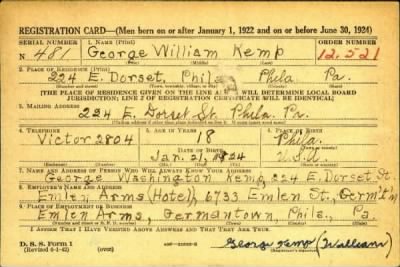 REGISTRATION CARD—(Men born on or after January 1, 1922 and on or before June 30, 1924)
SERIAL NUMBER 1. NAME (Print) ORDER NUMBER
N 481 George William Kemp 12,521
2. PLACE OF RESIDENCE (Print)
224 E. Dorset, Phila Phila. Pa.
[THE PLACE OF RESIDENCE GIVEN ON THE LINE ABOVE WILL DETERMINE LOCAL BOARD
JURISDICTION; LINE 2 OF REGISTRATION CERTIFICATE WILL BE IDENTICAL]
3. MAILING ADDRESS
224 E. Dorset St. Phila. Pa.
4. TELEPHONE 5. AGE IN YEARS 6. PLACE OF BIRTH
Victor 2804 18 Phila.
DATE OF BIRTH
Jan. 21, 1924 U.S.A.
7. NAME AND ADDRESS OF PERSON WHO WILL ALWAYS KNOW YOUR ADDRESS
George Washington Kemp, 224 E. Dorset St
8. EMPLOYER'S NAME AND ADDRESS
Emlen Arms (Hotel), 6733 Emlen St., Germ't'n
9. PLACE OF EMPLOYMENT OR BUSINESS
Emlen Arms, Germantown, Phila., Pa.
I AFFIRM THAT I HAVE VERIFIED ABOVE ANSWERS AND THAT THEY ARE TRUE.
D. S. S. Form 1
(Revised 6-1-42) George Kemp (William)